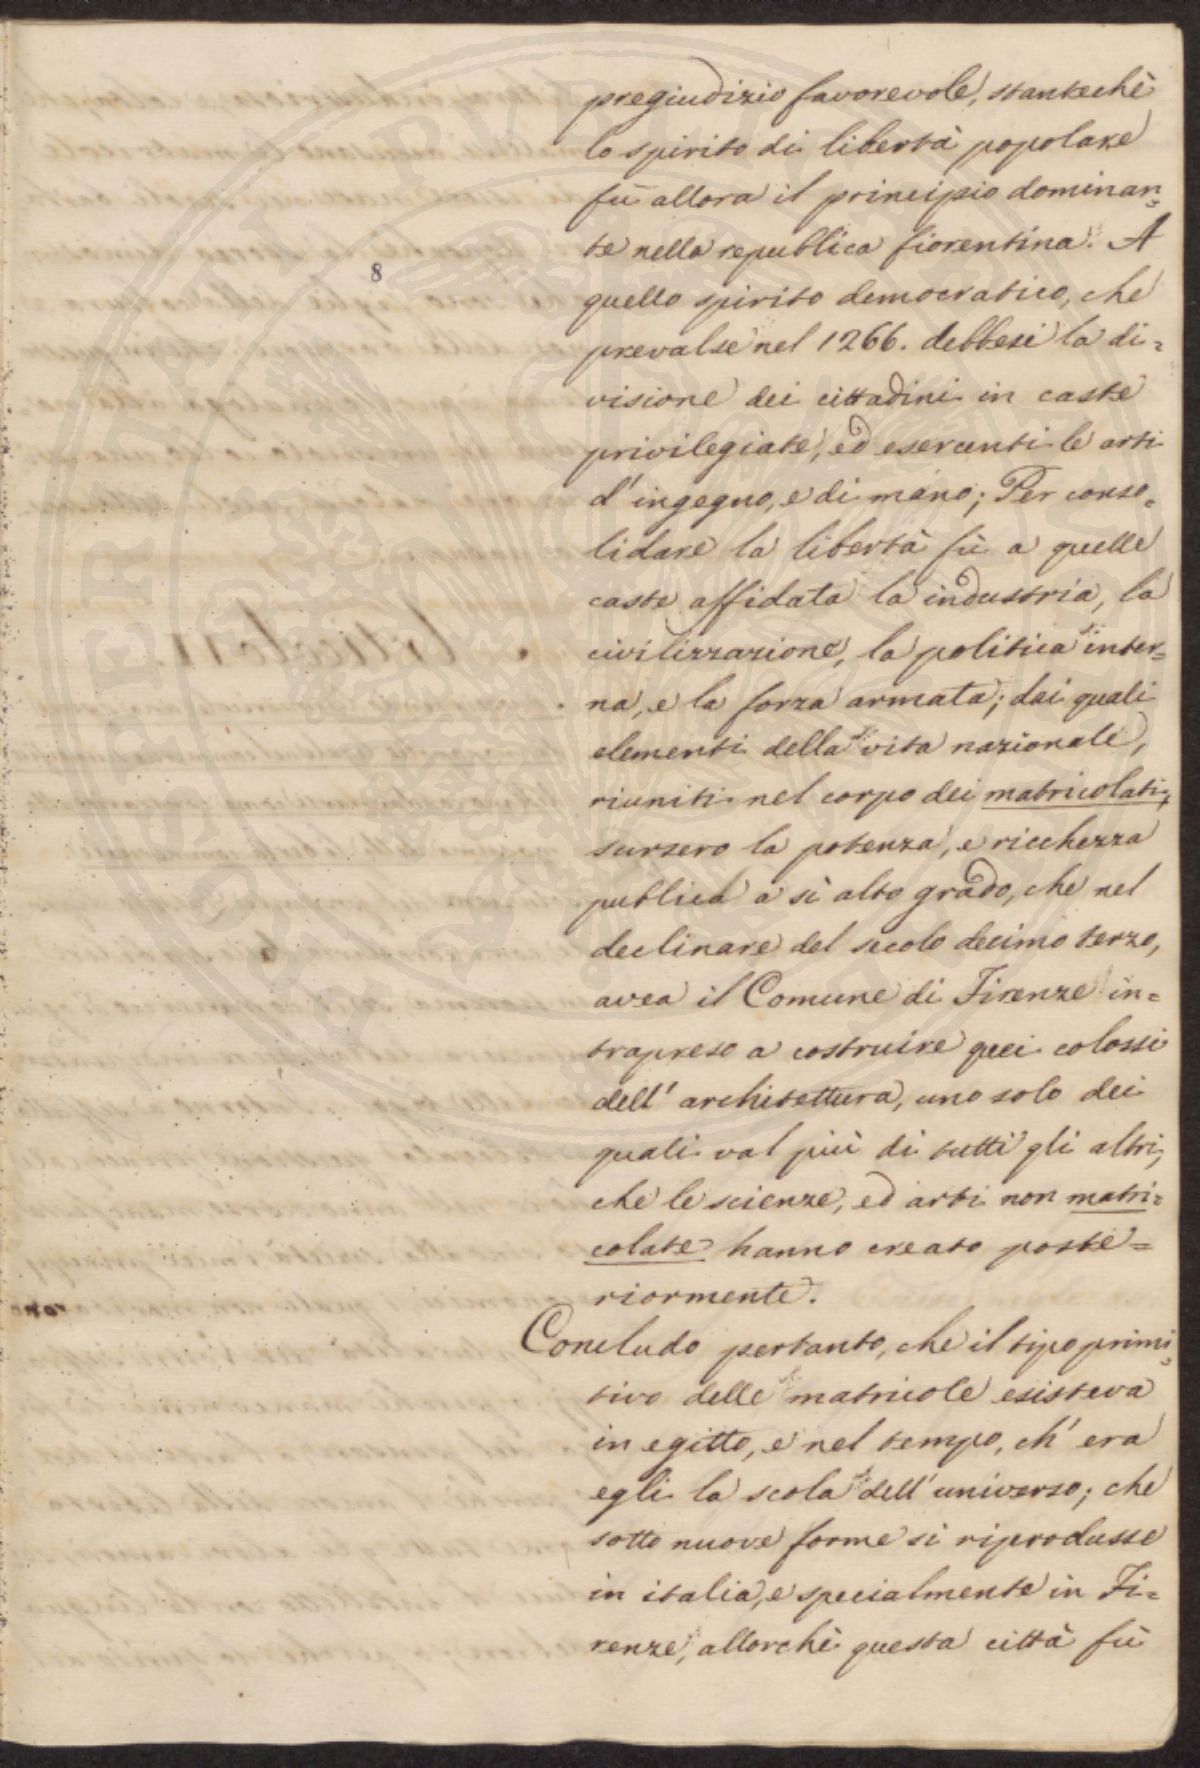 8
pregiudizio favorevole, stantechè
lo spirito di libertà popolare
fù allora il principio dominan=
te nella republica fiorentina. A
quello spirito democratico, che
prevalse nel 1266. debbesi la di=
visione dei cittadini in caste
privilegiate, ed esercenti le arti
d'ingegno, e di mano; Per conso=
lidare la libertà fù a quelle
caste affidata la industria, la
civilizzazione, la politica inter=
na, e la forza armata; dai quali
elementi della vita nazionale,
riuniti nel corpo dei matricolati,
sursero la potenza, e ricchezza
publica a sì alto grado, che nel
declinare del secolo decimo terzo,
avea il Comune di Firenze in=
trapreso a costruire quei colossi
dell'architettura, uno solo dei
quali val più di tutti gli altri,
che le scienze, ed arti non matri=
colate hanno creato poste=
riormente.
Concludo pertanto, che il tipo primi=
tivo delle matricole esisteva
in egitto, e nel tempo, ch'era
egli la scola dell'universo; che
sotto nuove forme si riprodusse
in italia, e specialmente in Fi=
renze, allorchè questa città fù